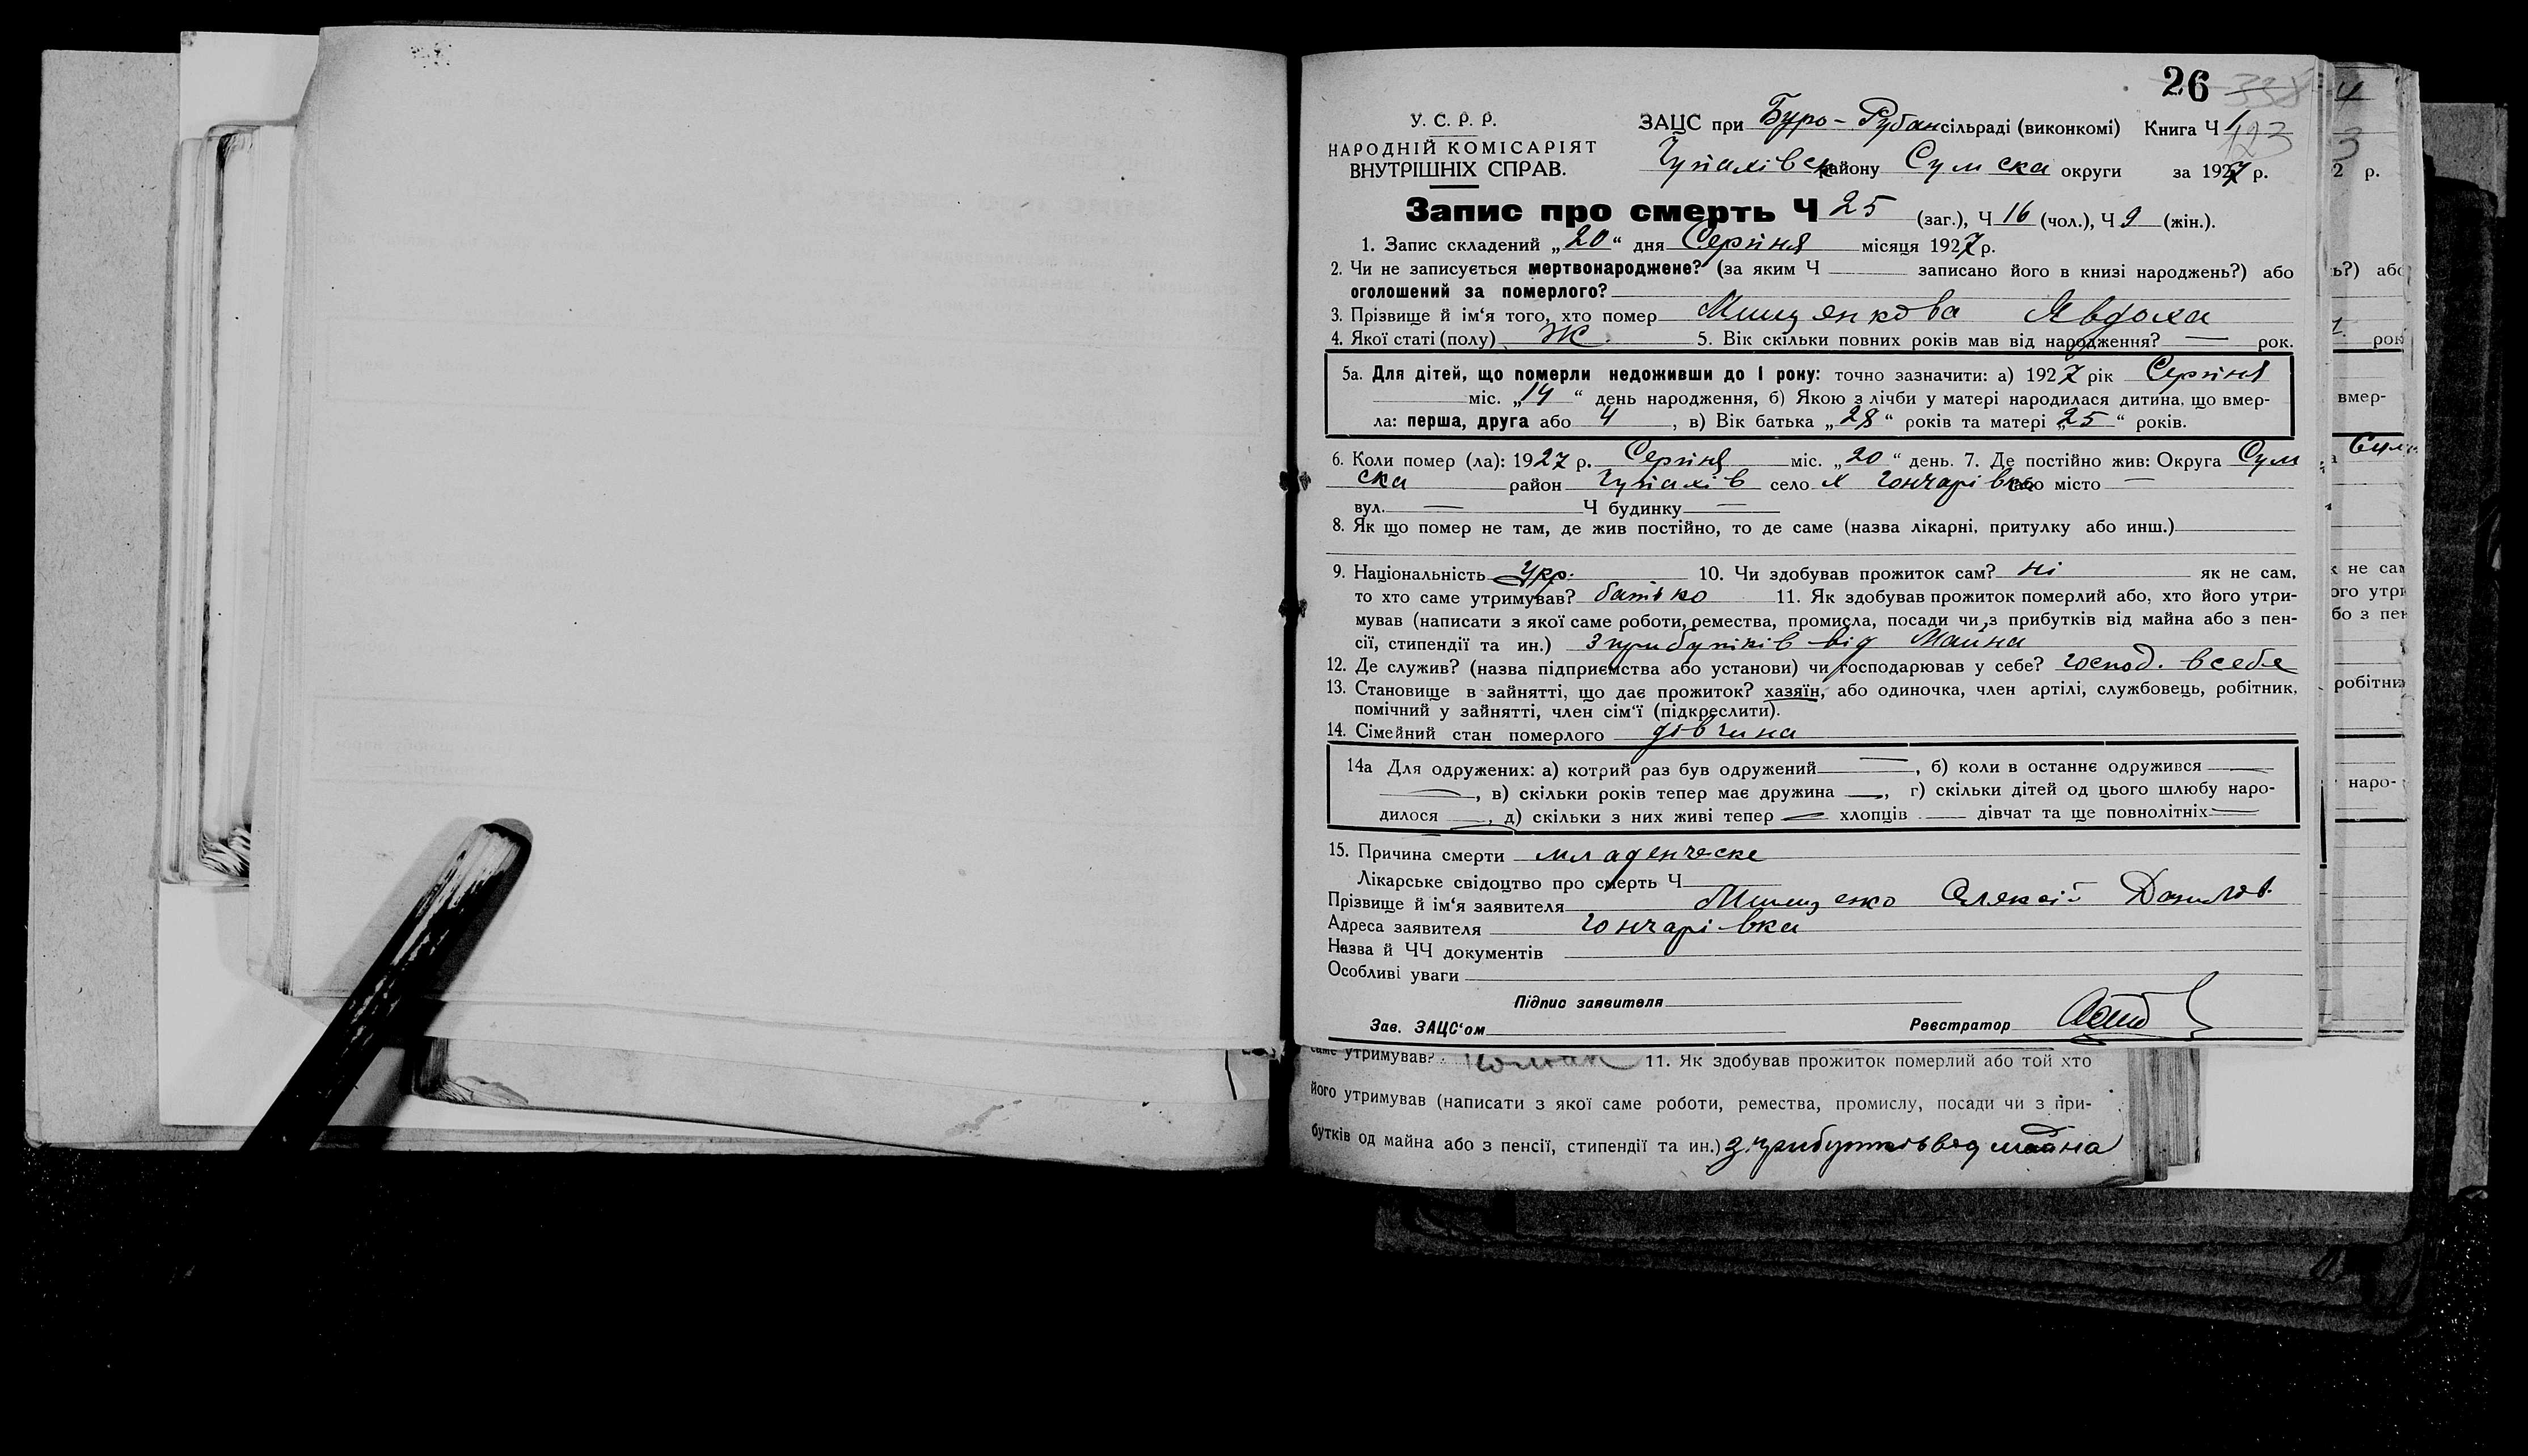 26
У. С. Р. Р.
НАРОДНІЙ КОМІСАРІЯТ
ВНУТРІШНІХ СПРАВ.
ЗАЦС при Буро-Рубан сільраді (виконкомі) Книга Ч 1
123
Чупахівськ району Сумска округи за 1927 р.
Запис про смерть Ч 25 (заг.), Ч 16 (чол.), Ч 9 (жін.).
1. Запис складений „20“ дня Серпня місяця 1927 р.
2. Чи не записується мертвонароджене? (за яким Ч записано його в книзі народжень?) або
оголошений за померлого?
3. Прізвище й ім‘я того, хто помер Мищенкова Явдоха
4. Якої статі (полу) Ж. 5. Вік скільки повних років мав від народження? — рок.
5а. Для дітей, що померли недоживши до 1 року: точно зазначити: а) 1927 рік Серпня
міс. „14“ день народження, б) Якою з лічби у матері народилася дитина, що вмер-
ла: перша, друга або 4, в) Вік батька „28“ років та матері „25“ років.
6. Коли помер (ла): 1927 р. Серпня міс. „20“ день. 7. Де постійно жив: Округа Сум
ска район Чупахів село Х Гончарівка або місто —
вул. — Ч будинку —
8. Як що помер не там, де жив постійно, то де саме (назва лікарні, притулку або инш.)
9. Національність Укр. 10. Чи здобував прожиток сам? ні як не сам,
то хто саме утримував? батько 11. Як здобував прожиток померлий або, хто його утри-
мував (написати з якої саме роботи, ремества, промисла, посади чи з прибутків від майна або з пен-
сії, стипендії та ин.) з прибутків від майна
12. Де служив? (назва підприємства або установи) чи господарював у себе? господ. в себе
13. Становище в зайнятті, що дає прожиток? хазяїн, або одиночка, член артілі, службовець, робітник,
помічний у зайнятті, член сім‘ї (підкреслити).
14. Сімейний стан померлого дівчина
14а Для одружених: а) котрий раз був одружений —, б) коли в останнє одружився —
—, в) скільки років тепер має дружина —, г) скільки дітей од цього шлюбу наро-
дилося —, д) скільки з них живі тепер — хлопців — дівчат та ще повнолітніх —
15. Причина смерти младенческе
Лікарське свідоцтво про смерть Ч
Прізвище й ім‘я заявителя Мищенко Олексій Данилов.
Адреса заявителя Гончарівка
Назва й ЧЧ документів
Особливі уваги
Підпис заявителя
Зав. ЗАЦС‘ом Реєстратор
саме утримував? 11. Як здобував прожиток померлий або той хто
його утримував (написати з якої саме роботи, ремества, промислу, посади чи з при-
бутків од майна або з пенсії, стипендії та ин.) з прибутків від майна
4
3
2 р.
ь?) або
1. рок
вмер-
к не сам
ого утри
бо з пен
робітник
наро-